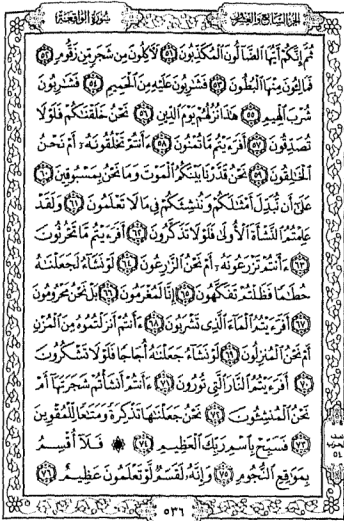 الجزء السابع والعشرون
سورة الواقعة
ثُمَّ إِنَّكُمْ أَيُّهَا ٱلضَّآلُّونَ ٱلْمُكَذِّبُونَ ٥١ لَءَاكِلُونَ مِن شَجَرٍ مِّن زَقُّومٍ ٥٢
فَمَالِـُٔونَ مِنْهَا ٱلْبُطُونَ ٥٣ فَشَٰرِبُونَ عَلَيْهِ مِنَ ٱلْحَمِيمِ ٥٤ فَشَٰرِبُونَ
شُرْبَ ٱلْهِيمِ ٥٥ هَٰذَا نُزُلُهُمْ يَوْمَ ٱلدِّينِ ٥٦ نَحْنُ خَلَقْنَٰكُمْ فَلَوْلَا
تُصَدِّقُونَ ٥٧ أَفَرَءَيْتُم مَّا تُمْنُونَ ٥٨ ءَأَنتُمْ تَخْلُقُونَهُۥٓ أَمْ نَحْنُ
ٱلْخَٰلِقُونَ ٥٩ نَحْنُ قَدَّرْنَا بَيْنَكُمُ ٱلْمَوْتَ وَمَا نَحْنُ بِمَسْبُوقِينَ ٦٠
عَلَىٰٓ أَن نُّبَدِّلَ أَمْثَٰلَكُمْ وَنُنشِئَكُمْ فِى مَا لَا تَعْلَمُونَ ٦١ وَلَقَدْ
عَلِمْتُمُ ٱلنَّشْأَةَ ٱلْأُولَىٰ فَلَوْلَا تَذَكَّرُونَ ٦٢ أَفَرَءَيْتُم مَّا تَحْرُثُونَ
٦٣ ءَأَنتُمْ تَزْرَعُونَهُۥٓ أَمْ نَحْنُ ٱلزَّٰرِعُونَ ٦٤ لَوْ نَشَآءُ لَجَعَلْنَٰهُ
حُطَٰمًا فَظَلْتُمْ تَفَكَّهُونَ ٦٥ إِنَّا لَمُغْرَمُونَ ٦٦ بَلْ نَحْنُ مَحْرُومُونَ
٦٧ أَفَرَءَيْتُمُ ٱلْمَآءَ ٱلَّذِى تَشْرَبُونَ ٦٨ ءَأَنتُمْ أَنزَلْتُمُوهُ مِنَ ٱلْمُزْنِ
أَمْ نَحْنُ ٱلْمُنزِلُونَ ٦٩ لَوْ نَشَآءُ جَعَلْنَٰهُ أُجَاجًا فَلَوْلَا تَشْكُرُونَ
٧٠ أَفَرَءَيْتُمُ ٱلنَّارَ ٱلَّتِى تُورُونَ ٧١ ءَأَنتُمْ أَنشَأْتُمْ شَجَرَتَهَآ أَمْ
نَحْنُ ٱلْمُنشِـُٔونَ ٧٢ نَحْنُ جَعَلْنَٰهَا تَذْكِرَةً وَمَتَٰعًا لِّلْمُقْوِينَ
٧٣ فَسَبِّحْ بِٱسْمِ رَبِّكَ ٱلْعَظِيمِ ٧٤ ۞ فَلَآ أُقْسِمُ
بِمَوَٰقِعِ ٱلنُّجُومِ ٧٥ وَإِنَّهُۥ لَقَسَمٌ لَّوْ تَعْلَمُونَ عَظِيمٌ ٧٦
٥٣٦